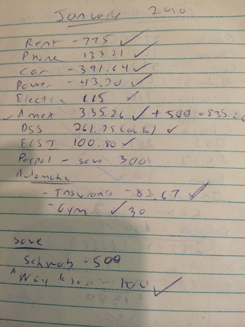 January 2010
Rent - 775 ✓
Phone 133.21 ✓
Car - 391.64 ✓
Power - 43.20 ✓
Electric 115 ✓
✓ Amex 335.26 ✓ + 500 = 835.26
DSS 261.25 ✓
100.80 ✓
Paypal - save 300
Automatic
- Insurance - 82.67 ✓
- Gym ✓ 30
Save
Schwab - 500
100 ✓